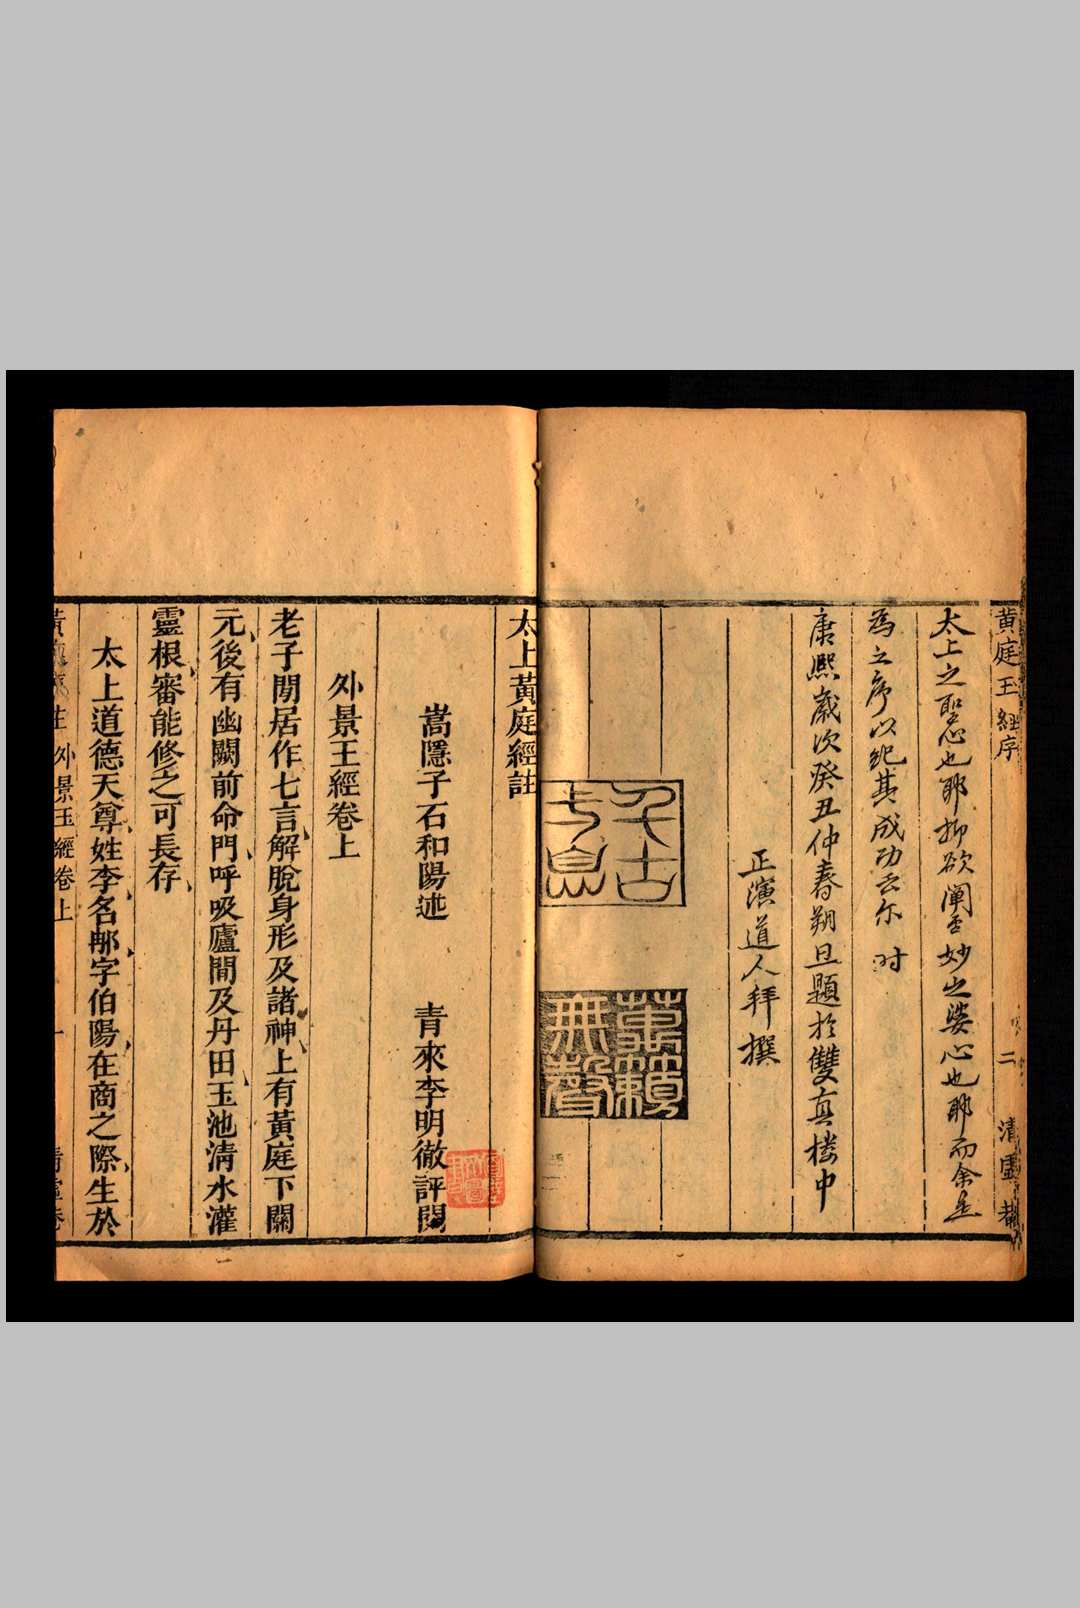 黃庭王經序
二
太上之聖心也耶抑欲闡玄妙之婆心也耶而余是
為之序以紀其成功云尔时
康熙歲次癸丑仲春朔旦題於雙真樓中
正演道人拜撰
萬籟
無聲
太上黃庭經註
嵩隱子石和陽述 青來李明徹評閱
外景王經卷上
老子閒居作七言解脫身形及諸神上有黃庭下關
元後有幽闕前命門呼吸廬間及丹田玉池清水灌
靈根審能修之可長存
太上道德天尊姓李名耼字伯陽在商之際生於
外景玉經卷上
一